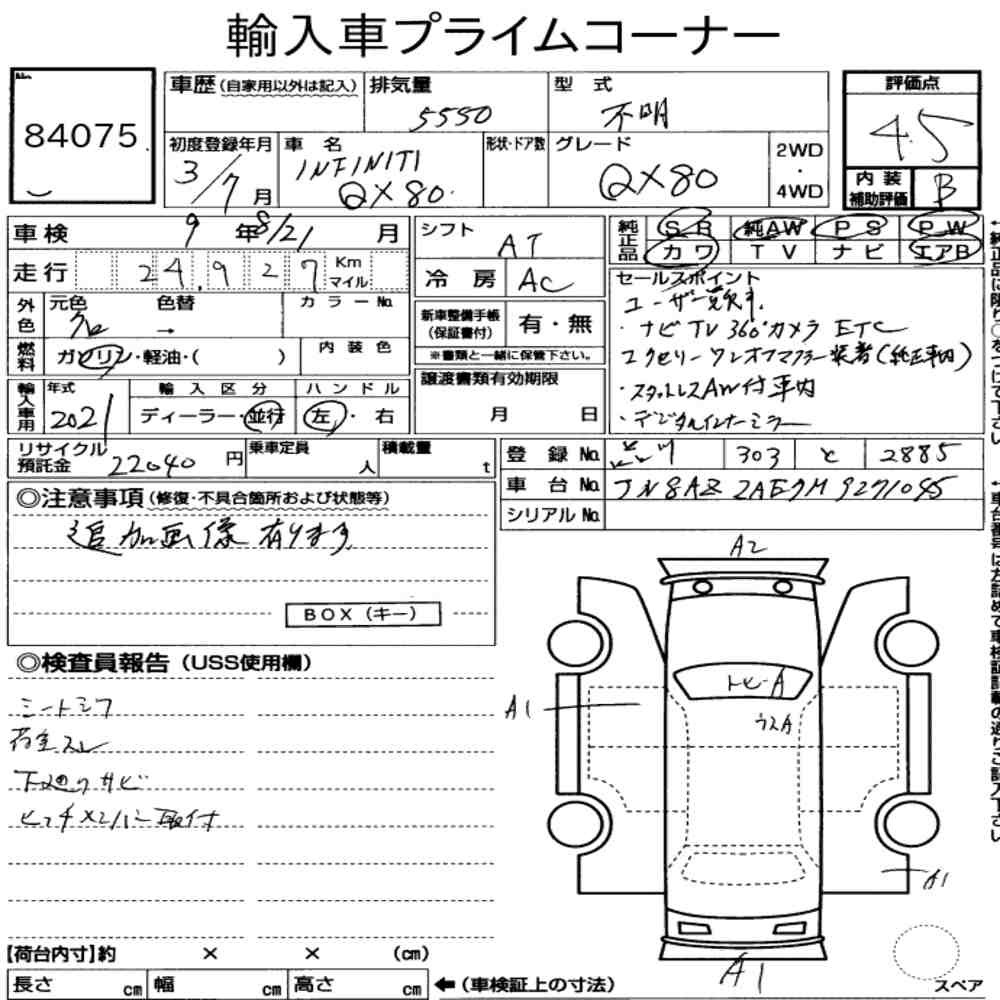 輸入車プライムコーナー
No.
84075
車歴(自家用以外は記入)
排気量
5550
型式
不明
評価点
4.5
初度登録年月
3/7月
車名
INFINITI
QX80
形状・ドア数
グレード
QX80
2WD
・
4WD
内装
補助評価
B
車検
9年8/21月
走行
24,927
Km
マイル
シフト
AT
冷房
AC
純正品
SR
純AW
PS
PW
カワ
TV
ナビ
エアB
外色
元色
クロ
色替
→
カラーNo.
燃料
ガソリン・軽油・( )
内装色
新車整備手帳
(保証書付)
有・無
※書類と一緒に保管下さい。
セールスポイント
ユーザー買取り.
・ナビTV 360°カメラ ETC
・スタッドレスAW付車内
・デジタルインナーミラー
輸入車用
年式
2021
輸入区分
ディーラー・並行
ハンドル
左・右
譲渡書類有効期限
月 日
リサイクル
預託金
22040円
乗車定員
人
積載量
t
登録No.
303
と
2885
車台No.
JN8AZ2AE7M9271095
シリアルNo.
◎注意事項(修復・不具合箇所および状態等)
追加画像有ります
BOX(キー)
◎検査員報告(USS使用欄)
シートシワ
荷室スレ
下廻りサビ
ヒッチメンバー取付
A2
トビ-A
ウスA
A1
A1
A1
スペア
【荷台内寸】約 × × (cm)
長さ cm
幅 cm
高さ cm
←(車検証上の寸法)